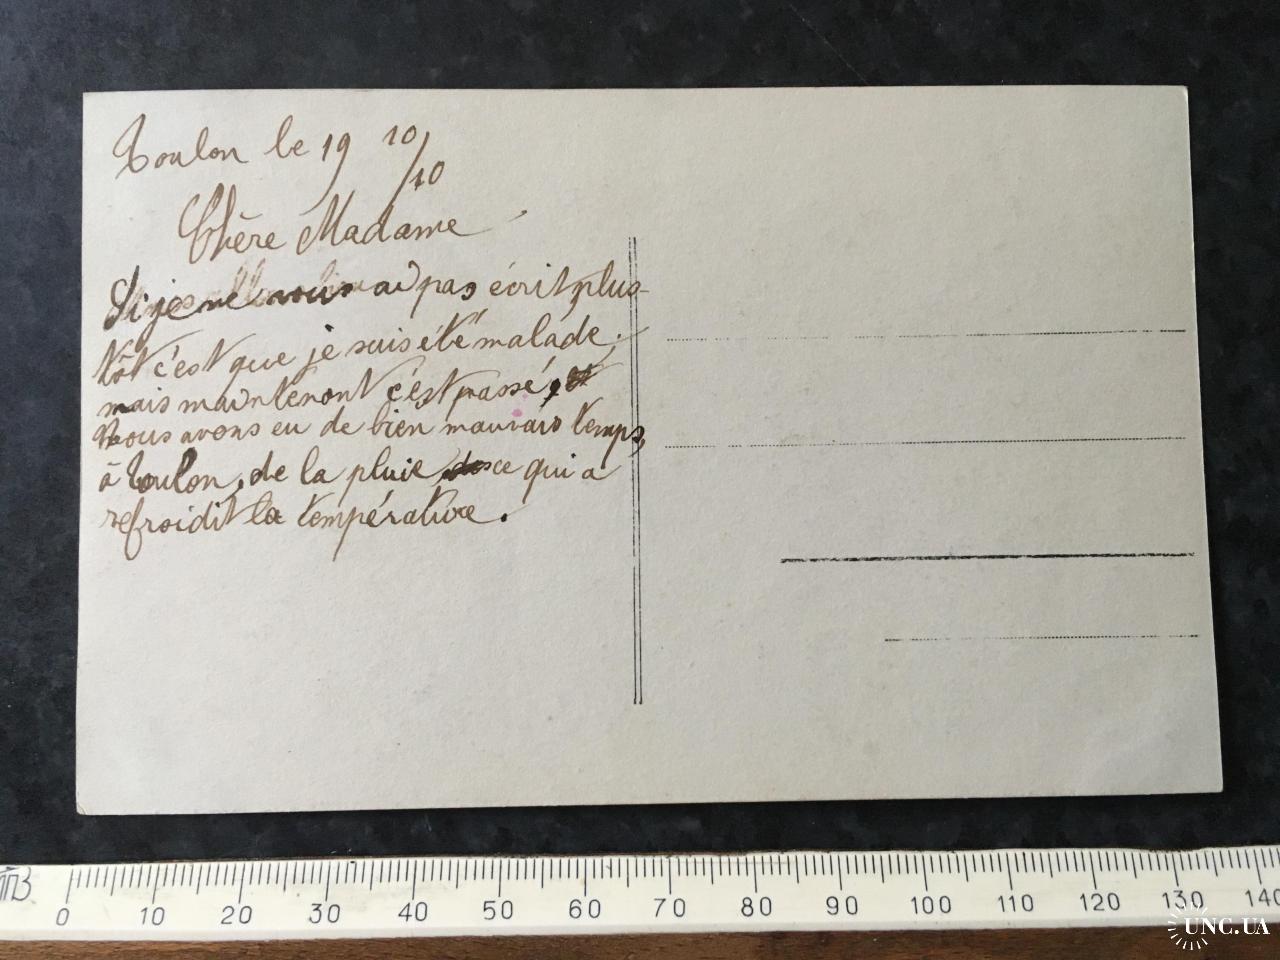 Toulon le 19 10/10
Chère Madame
Si je ne vous ai pas écrit plus-
tôt c'est que je suis été malade,
mais maintenant c'est passé,
Nous avons eu de bien mauvais temps,
à Toulon, de la pluie, ce qui a
refroidit la température.
0 10 20 30 40 50 60 70 80 90 100 110 120 130 140
UNC.UA